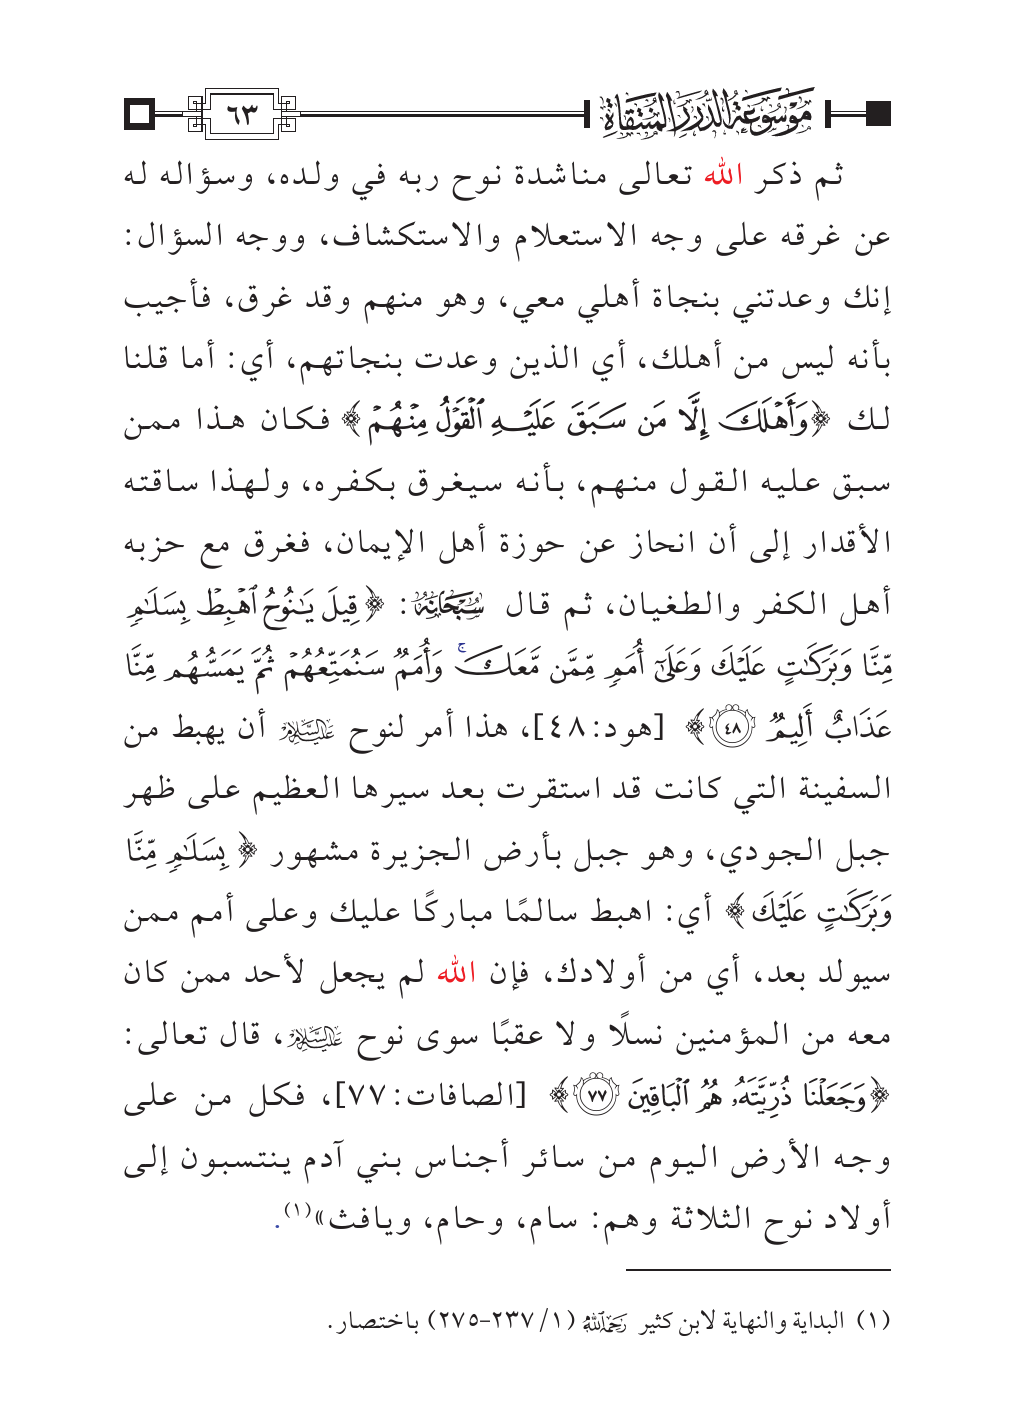 موسوعة الدرر المنتقاة ٦٣
ثم ذكر الله تعالى مناشدة نوح ربه في ولده، وسؤاله له
عن غرقه على وجه الاستعلام والاستكشاف، ووجه السؤال:
إنك وعدتني بنجاة أهلي معي، وهو منهم وقد غرق، فأجيب
بأنه ليس من أهلك، أي الذين وعدت بنجاتهم، أي: أما قلنا
لك ﴿وَأَهْلَكَ إِلَّا مَن سَبَقَ عَلَيْهِ ٱلْقَوْلُ مِنْهُمْ﴾ فكان هذا ممن
سبق عليه القول منهم، بأنه سيغرق بكفره، ولهذا ساقته
الأقدار إلى أن انحاز عن حوزة أهل الإيمان، فغرق مع حزبه
أهل الكفر والطغيان، ثم قال سُبْحَانَهُ: ﴿قِيلَ يَٰنُوحُ ٱهْبِطْ بِسَلَٰمٖ
مِّنَّا وَبَرَكَٰتٍ عَلَيْكَ وَعَلَىٰٓ أُمَمٖ مِّمَّن مَّعَكَۚ وَأُمَمٞ سَنُمَتِّعُهُمْ ثُمَّ يَمَسُّهُم مِّنَّا
عَذَابٌ أَلِيمٞ ٤٨﴾ [هود: ٤٨]، هذا أمر لنوح عليه السلام أن يهبط من
السفينة التي كانت قد استقرت بعد سيرها العظيم على ظهر
جبل الجودي، وهو جبل بأرض الجزيرة مشهور ﴿بِسَلَٰمٖ مِّنَّا
وَبَرَكَٰتٍ عَلَيْكَ﴾ أي: اهبط سالمًا مباركًا عليك وعلى أمم ممن
سيولد بعد، أي من أولادك، فإن الله لم يجعل لأحد ممن كان
معه من المؤمنين نسلًا ولا عقبًا سوى نوح عليه السلام، قال تعالى:
﴿وَجَعَلْنَا ذُرِّيَّتَهُۥ هُمُ ٱلْبَاقِينَ ٧٧﴾ [الصافات: ٧٧]، فكل من على
وجه الأرض اليوم من سائر أجناس بني آدم ينتسبون إلى
أولاد نوح الثلاثة وهم: سام، وحام، ويافث»(١).
(١) البداية والنهاية لابن كثير رحمه الله (١/ ٢٣٧-٢٧٥) باختصار.